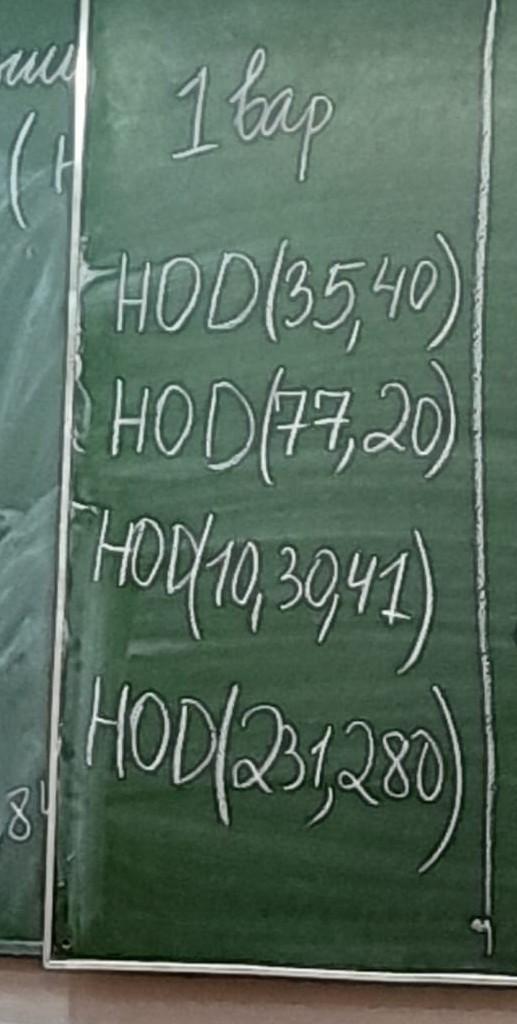 1 вар
НОD(35,40)
НОD(77,20)
НОD(10,30,41)
НОD(231,280)